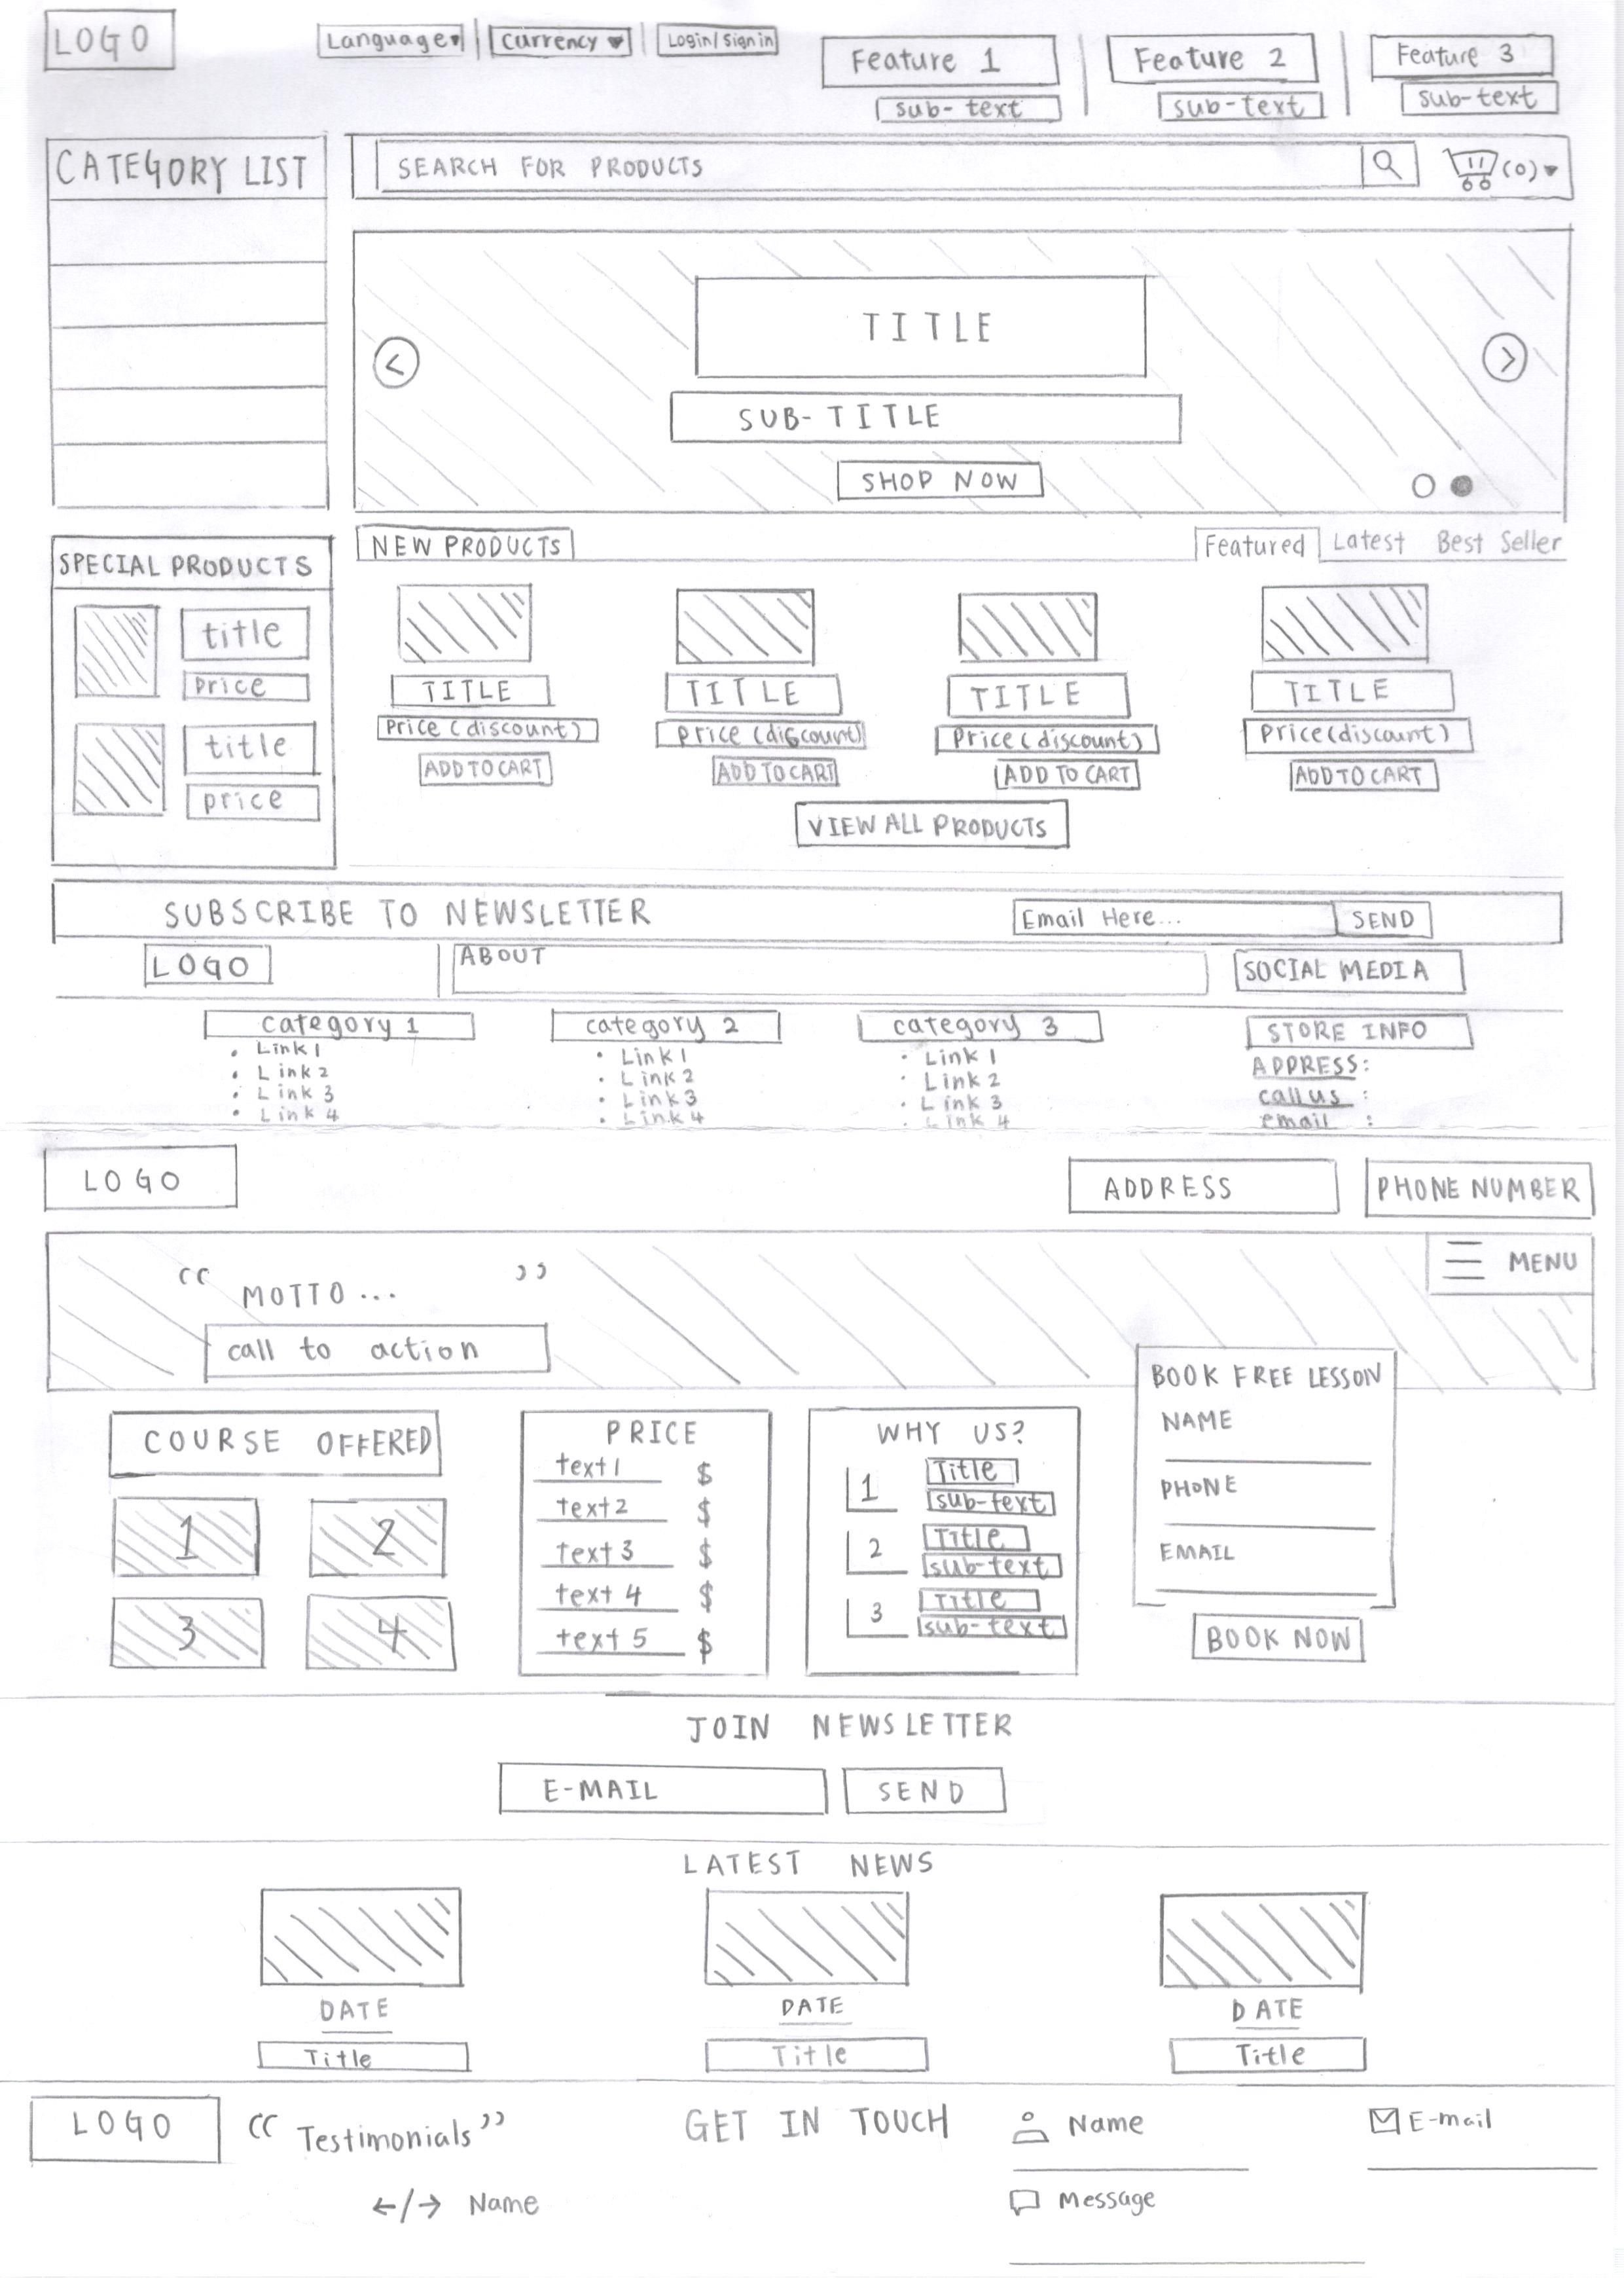 LOGO
Language
Currency
Login/Sign in
Feature 1
Sub-text
Feature 2
Sub-text
Feature 3
Sub-text
CATEGORY LIST
SEARCH FOR PRODUCTS
(0)
TITLE
SUB-TITLE
SHOP NOW
SPECIAL PRODUCTS
title
price
title
price
NEW PRODUCTS
Featured
Latest
Best Seller
TITLE
TITLE
TITLE
TITLE
Price (discount)
price (discount)
Price (discount)
Price (discount)
ADD TO CART
ADD TO CART
ADD TO CART
ADD TO CART
VIEW ALL PRODUCTS
SUBSCRIBE TO NEWSLETTER
Email Here...
SEND
LOGO
ABOUT
SOCIAL MEDIA
category 1
• Link 1
• Link 2
• Link 3
• Link 4
category 2
• Link 1
• Link 2
• Link 3
• Link 4
category 3
• Link 1
• Link 2
• Link 3
• Link 4
STORE INFO
ADDRESS:
call us :
email :
LOGO
ADDRESS
PHONE NUMBER
MENU
“ MOTTO... ”
call to action
COURSE OFFERED
1
2
3
4
PRICE
text 1 $
text 2 $
text 3 $
text 4 $
text 5 $
WHY US?
1
Title
sub-text
2
Title
sub-text
3
Title
sub-text
BOOK FREE LESSON
NAME
PHONE
EMAIL
BOOK NOW
JOIN NEWSLETTER
E-MAIL
SEND
LATEST NEWS
DATE
DATE
DATE
Title
Title
Title
LOGO
“ Testimonials ”
←/→ Name
GET IN TOUCH
Name
E-mail
Message